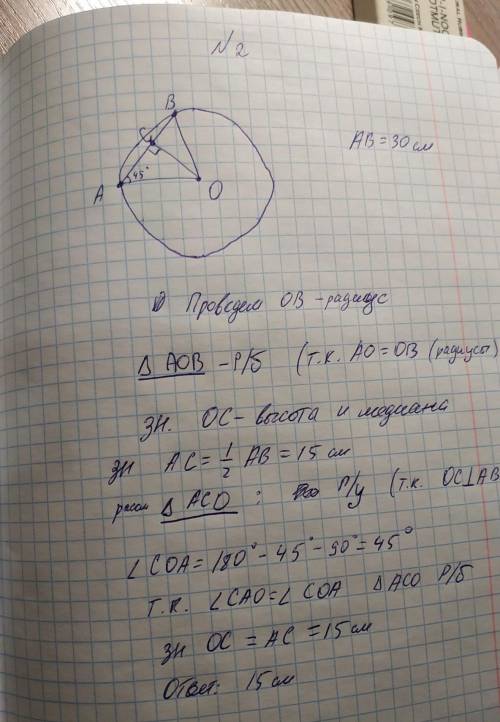 N 2
B
C
A
45°
O
AB = 30 см
1) Проведем OB - радиус
Δ AOB - Р/б (т.к. AO = OB (радиусы)
зн. OC - высота и медиана
зн AC = 1/2 AB = 15 см
рассм Δ ACO : Р/у (т.к. OC⊥AB
∠ COA = 180° - 45° - 90° = 45°
т.к. ∠ CAO = ∠ COA Δ ACO Р/б
зн OC = AC = 15 см
Ответ: 15 см